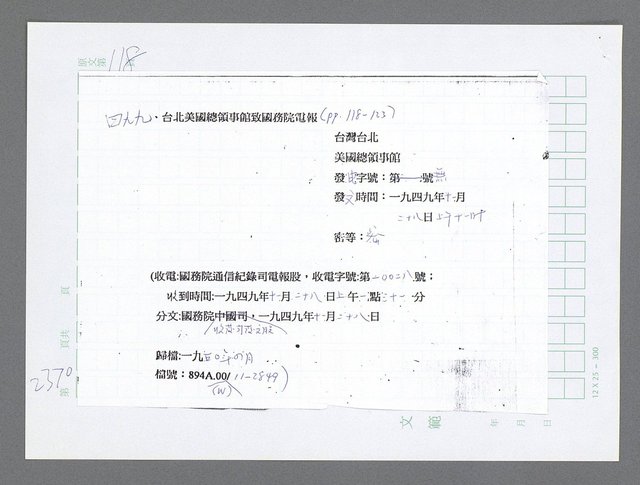 原文第 118
四九九、台北美國總領事館致國務院電報 (pp. 118-123)
台灣台北
美國總領事館
發 字號：第 號無
發文時間：一九四九年十一月
二十八日上午十一時
密等：密
(收電:國務院通信紀錄司電報股，收電字號:第一00二八號；
收到時間:一九四九年十一月二十八日上午一點三十一分
分文:國務院中國司，一九四九年十一月二十八日
歸檔:一九五0年四月
檔號：894A.00/11-2849)
(W)
頁
頁共
2370
第
文範
年 月 日
12X25-300